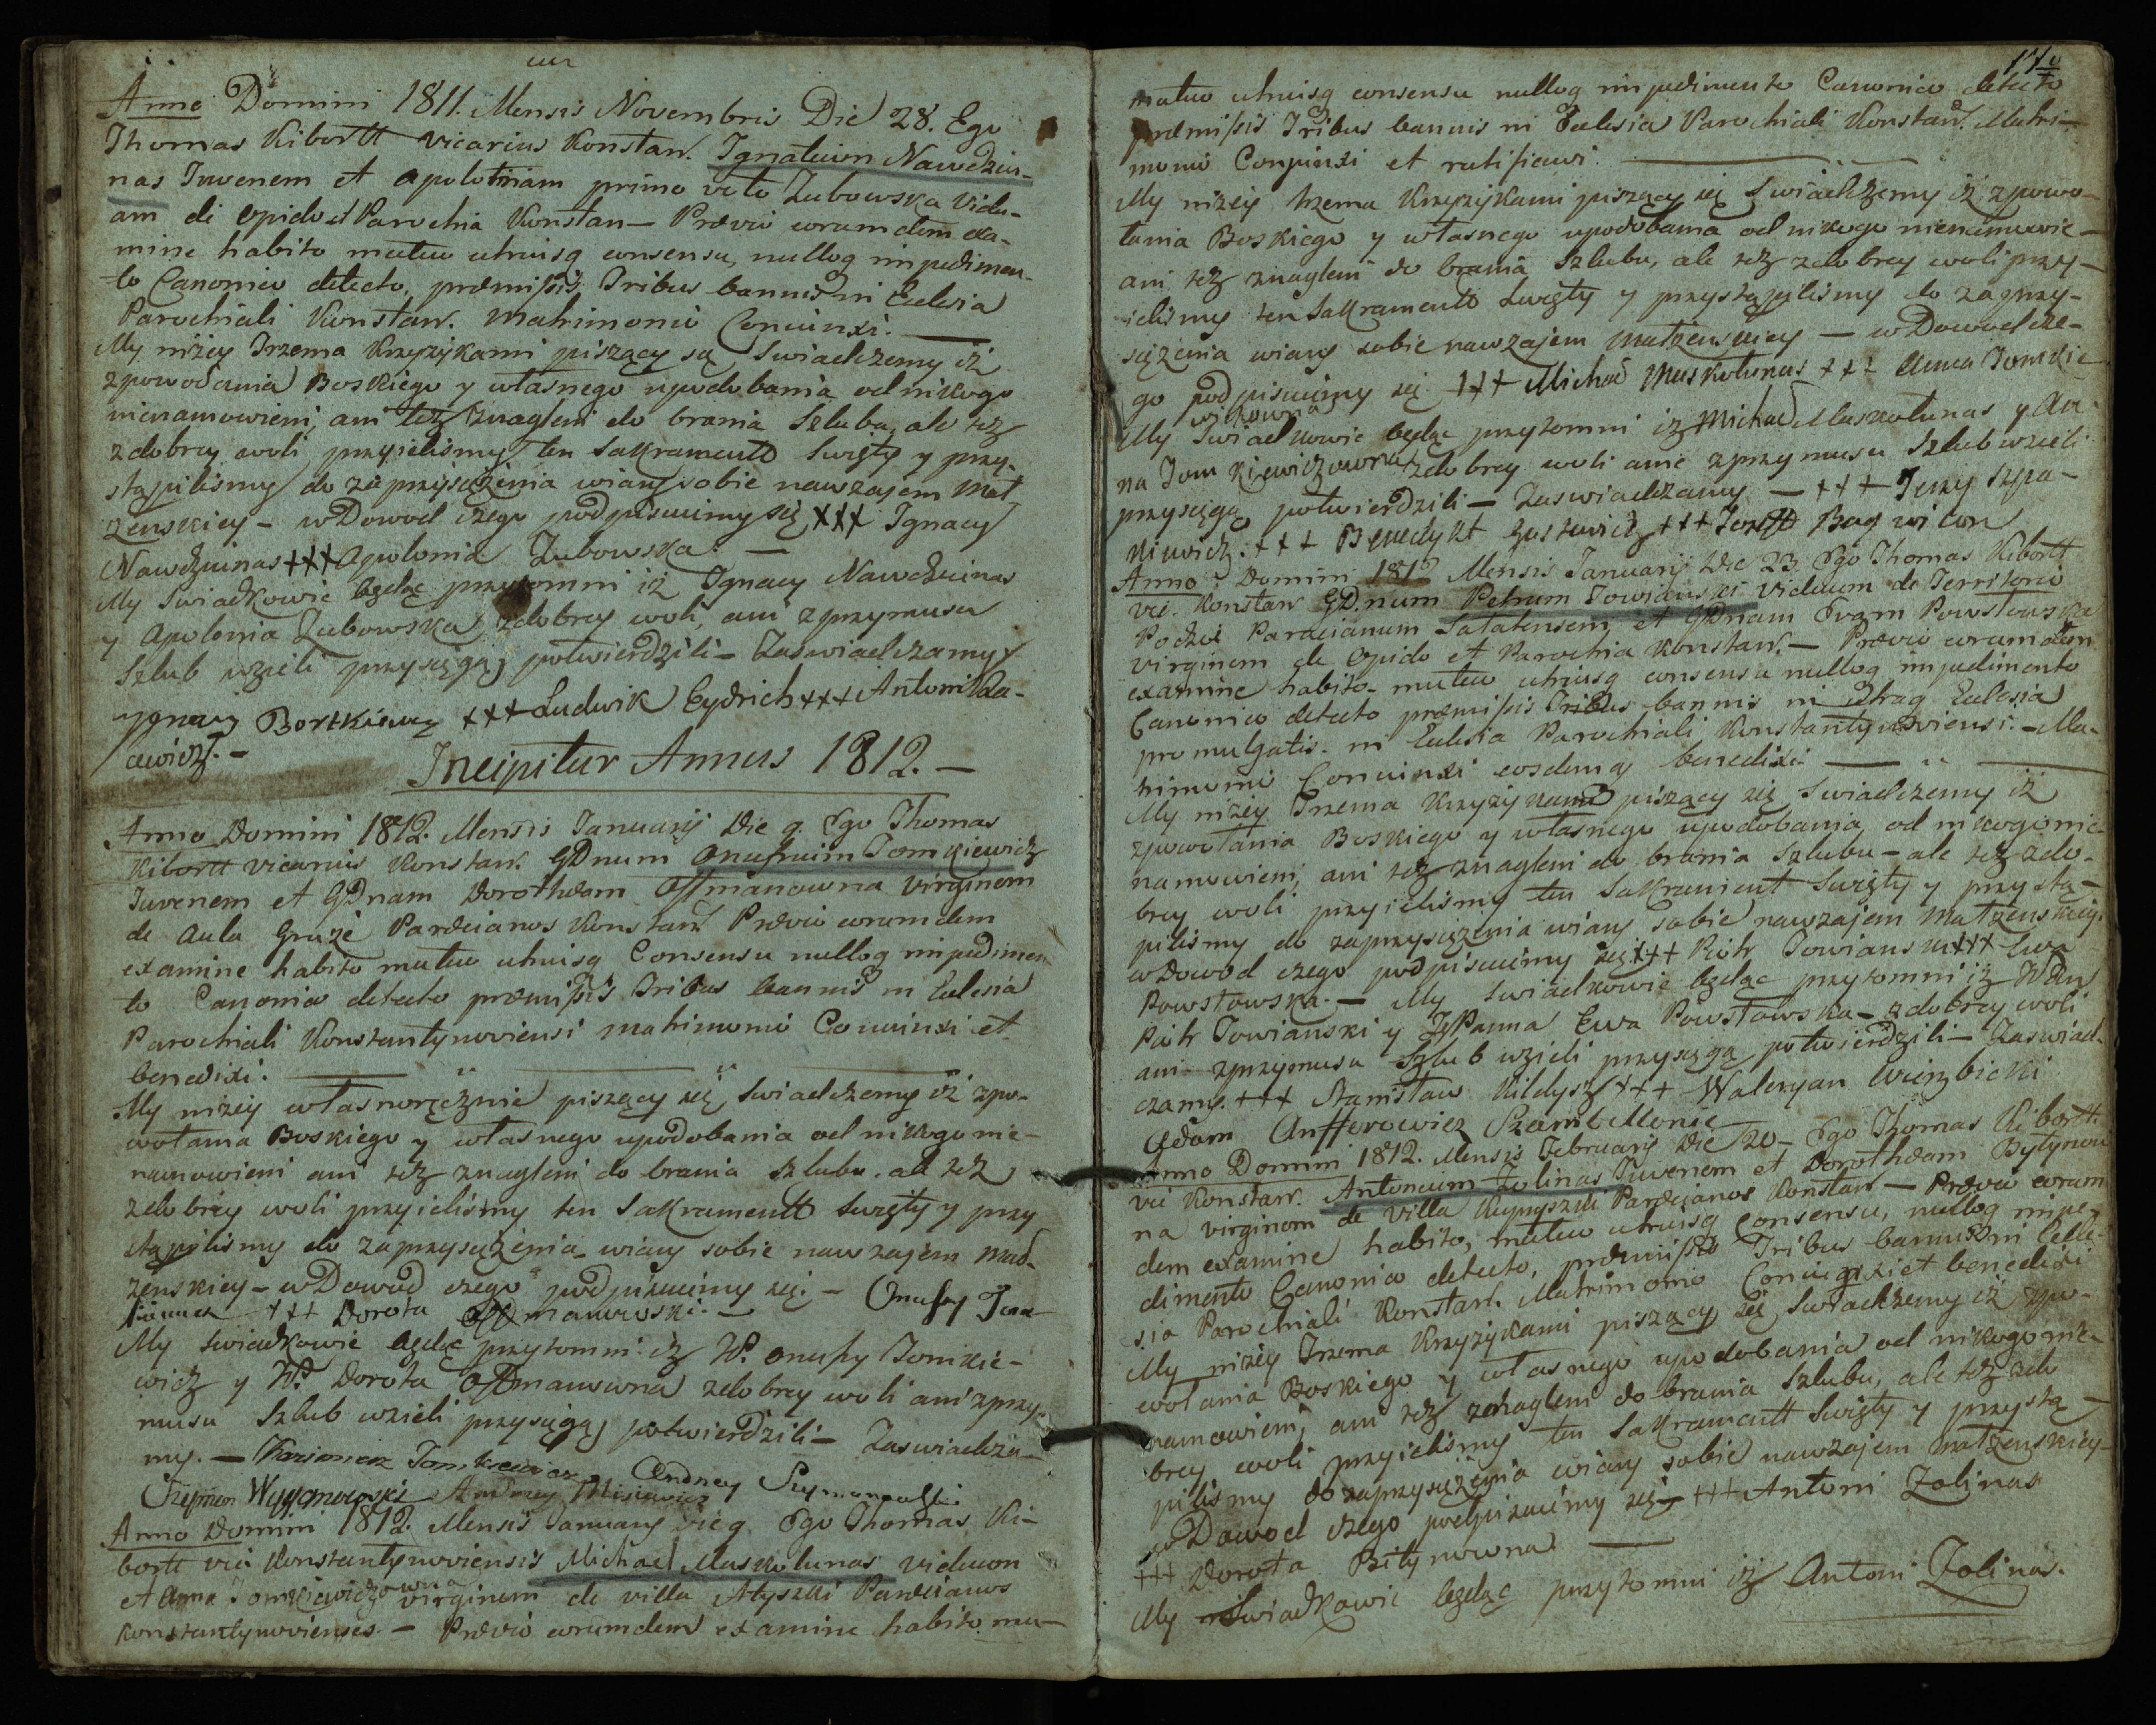 Anno Domini 1811. Mensis Novembris Die 28. Ego
Thomas Kibortt vicarius Konstan. Ignatium Nawdziu-
nas Juvenem et Apoloniam primo voto Zubowska Vidu-
am di opido et Parochia Konstan — Prævio eorumdem exa-
mine habito mutuo utriusq consensu, nulloq impedimen-
to Canonico detecto, præmissis Tribus bannis in Eclesia
Parochiali Konstan. Matrimonio Coniunxi. —
My niżey Trzema Krzyżykami piszący są Swiadczemy iż
zpowołania Boskiego y własnego upodobania od nikogo
nienamowieni, ani też znagleni do brania Szlubu, ale też
zdobrey woli przyieliśmy ten Sakramentt Swięty y przy-
stąpiliśmy do zaprzysiężenia wiary sobie nawzajem Mał
żenskiey — wDowod czego podpisuiemy się XXX Ignacy
Nawdziunas +++ Apolonia Zubowska. —
My Swiadkowie będąc przytomni iż Ignacy Nawdziunas
y Apolonia Zubowska zdobrey woli, ani zprzymusu
Szlub wzieli przysięgą potwierdzili — Zaswiadczamy
Ygnacy Bortkiewicz +++ Ludwik Eydrich +++ Antoni
awicz. —
Incipitur Annus 1812. —
Anno Domini 1812. Mensis Januarij Die 9. Ego Thomas
Kibortt vicarius Konstan. GDnum Onufrium Tomkiewicz
Juvenem et GDnam Dorotheam Offmanowna Virginem
de Aula Gruże Parœcianos Konstan. Prævio eorumdem
examine habito mutuo utriusq Consensu nulloq impedimen
to Canonico detecto præmissis Tribus bannis in Eclesia
Parochiali Konstantynoviensi matrimonio Coniunxi et
benedixi. —
My niżey własnoręcznie piszący się Swiadczemy iż zpo-
wołania Boskiego y własnego upodobania od nikogo nie-
namowieni ani też znagleni do brania Szlubu. ale też
zdobrey woli przyieliśmy ten Sakramentt Swięty y przy
stąpiliśmy do zaprzysiężenia wiary sobie nawzajem Mał-
żenskiey — wDowod czego podpisuiemy się. — Onufry Tom
kiewicz +++ Dorota Offmanowski. —
My Swiadkowie będąc przytomni iż W. Onufry Tomkie-
wicz y W. Dorota Offmanowna zdobrey woli ani zprzy-
musu Szlub wzieli przysięgą potwierdzili — Zaswiadcza-
my. — Kazimierz Tomkiewicz Andrzey Szymanowski
Szymon Wygonowski Andrzey Misiewicz
Anno Domini 1812. Mensis January Die 9. Ego Thomas Ki-
bortt vic Konstantynoviensis Michael Maskolunas viduum
et Anna Tomkiewiczowna virginem de villa Atyszki Parœcianos
Konstantynovienses — Prævio eorumdem examine habito mu-
170
mutuo utriusq consensu nulloq impedimento Canonico detecto
præmissis Tribus bannis in Eclesia Parochiali Konstan. Matri-
monio Conjunxi et ratificavi. —
My niżey trzema Krzyżykami piszący się Swiadczemy iż zpowo-
łania Boskiego y własnego upodobania od nikogo nienamowie-
ani też znagleni do brania Szlubu, ale też zdobrey woli przy-
ieliśmy ten Sakramentt Swięty y przystąpiliśmy do zaprzy-
siężenia wiary sobie nawzajem Małżenskiey — wDowod cze-
go podpisuiemy się +++ Michał Maskolunas +++ Anna Tomkie
wiczowna
My Swiadkowie będąc przytomni iż Michał Maskolunas y An-
na Tomkiewiczowna zdobrey woli anie zprzymusu Szlub wzieli
przysięgą potwierdzili — Zaswiadczamy — +++ Jerzy Szpa-
kiewicz. +++ Benedykt Gustowicz +++ Jozeff
Anno Domini 1812 Mensis Januarij Die 23. Ego Thomas Kibortt
vic. Konstan GDnum Petrum Towianski Viduum de Territorio
Podzie Parœcianum Sałatensem et GDnam Evam Powstowska
virginem de Opido et Parochia Konstan. — Prævio eorumdem
examine habito — mutuo utriusq consensu nulloq impedimento
Canonico detecto præmissis Tribus bannis in utraq Eclesia
promulgatis — in Eclesia Parochiali Konstantynoviensi. — Ma-
trimonio Coniunxi eosdemq benedixi — —
My niżey Trzema Krzyżykami piszący się Swiadczemy iż
zpowołania Boskiego y własnego upodobania od nikogo nie-
namowieni, ani też znagleni do brania Szlubu — ale też zdo-
brey woli przyieliśmy ten Sakrament Swięty y przystą-
piliśmy do zaprzysiężenia wiary sobie nawzajem Małżenskiey
wDowod czego podpisuiemy się +++ Piotr Towianski +++ Ewa
Powstowska. — My Swiadkowie będąc przytomni iż WPan
Piotr Towianski y JPanna Ewa Powstowska — zdobrey woli
ani zprzymusu Szlub wzieli przysięgą potwierdzili — Zaswiad-
czamy. +++ Stanisław Kildysz +++ Waleryan Wierzbicki
Adam Anfforowicz
Anno Domini 1812. Mensis Februarij Die 20 — Ego Thomas Kibortt
vic Konstan. Antonium Zolinas Juvenem et Dorotheam Bytynow
na virginem de villa Parœcianos Konstan — Prævio eorum
dem examine habito, mutuo utriusq Consensu, nulloq impe-
dimento Canonico detecto, præmissis Tribus bannis in Ecle-
sia Parochiali Konstan. Matrimonio Coniunxi et benedixi
My niżey Trzema Krzyżykami piszący się Swiadczemy iż zpo-
wołania Boskiego y własnego upodobania od nikogo nie-
namowieni, ani też znagleni do brania Szlubu, ale też zdo
brey woli przyieliśmy ten Sakramentt Swięty y przystą-
piliśmy do zaprzysiężenia wiary sobie nawzajem Małżenskiey
wDowod czego podpisuiemy się — +++ Antoni Zolinas
+++ Dorota Bitynowna —
My Swiadkowie będąc przytomni iż Antoni Zolinas.